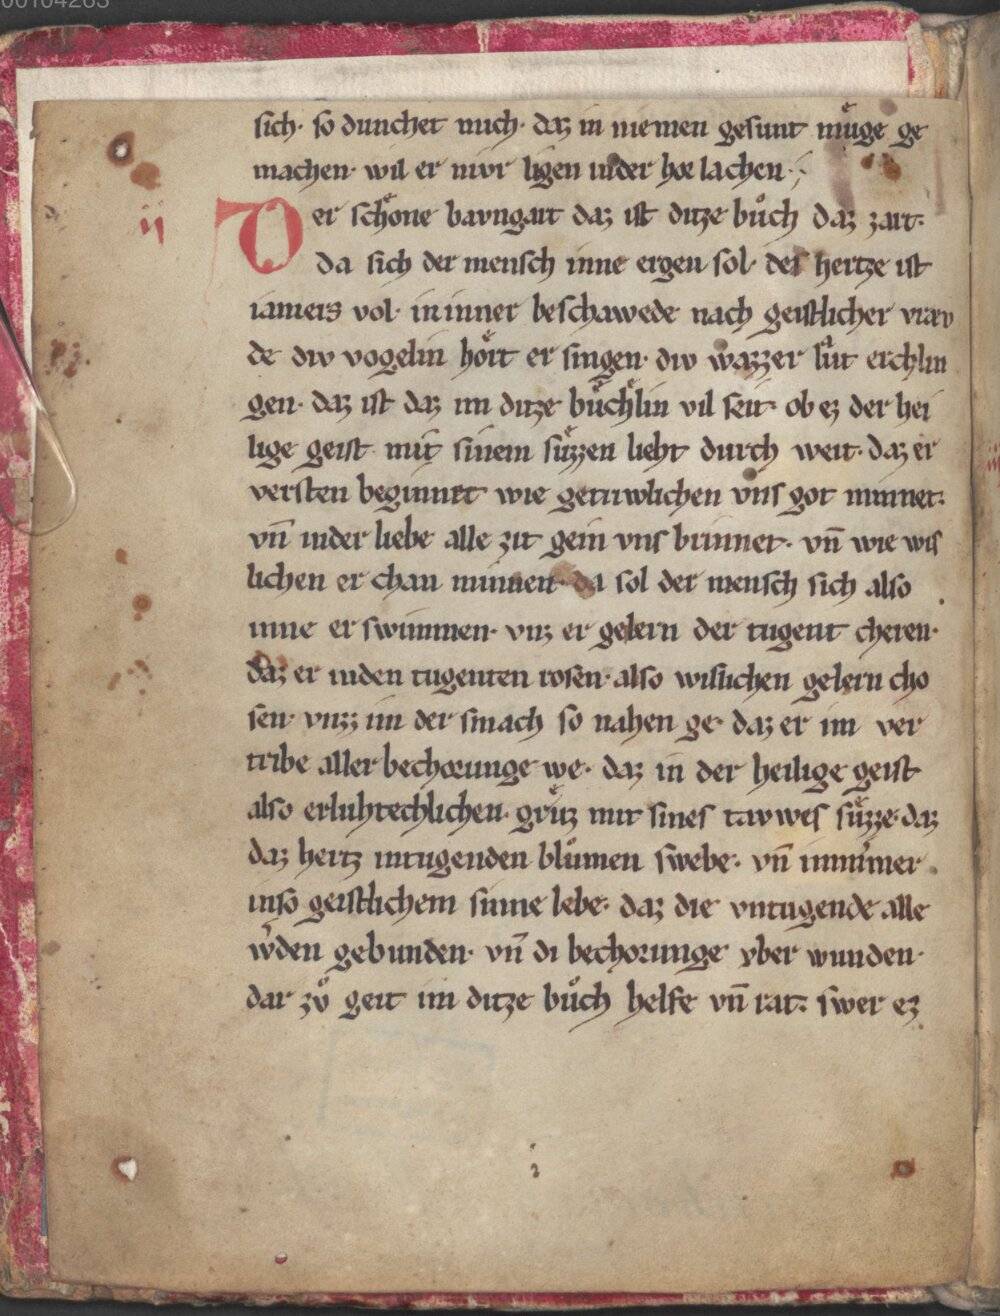 00104263
sich· so dunchet mich· daz in niemen gesunt muͤge ge
machen· wil er nivr ligen vnder hoe lachen·
ii Der schoͤne bavngart daz ist ditze buͦch daz zart·
da sich der mensch inne ergen sol· des hertze ist
iamers vol· in inner beschawede nach geistlicher vræv
de div vogelin hoͤrt er singen· div wazzer suͤt erchlin
gen· daz ist daz im ditze buͤchlin vil seit· ob ez der hei
lige geist mit sinem suͤzzen lieht durch weit· daz er
versten beginnet wie getriwlichen vns got minnet·
vn̄ inder liebe alle zit gein vns brinnet· vn̄ wie wis
lichen er chan minnen· da sol der mensch sich also
inne erswimmen· vnz er gelern der tugent cheren·
daz er inden tugenten rosen· also wislichen gelern cho
sen· vnzz im der smach so nahen ge· daz er im ver
tribe aller bechorunge we· daz in der heilige geist
also erluhtechlichen· gruͤz mit sines tavwes suͤzze· daz
daz hertz intugenden bluͦmen swebe· vn̄ immer
inso geistlichem sinne lebe· daz die vntugende alle
wͤden gebunden· vn̄ di bechorunge vber wunden·
dar zvͦ geit im ditze buͦch helfe vn̄ rat· swer ez